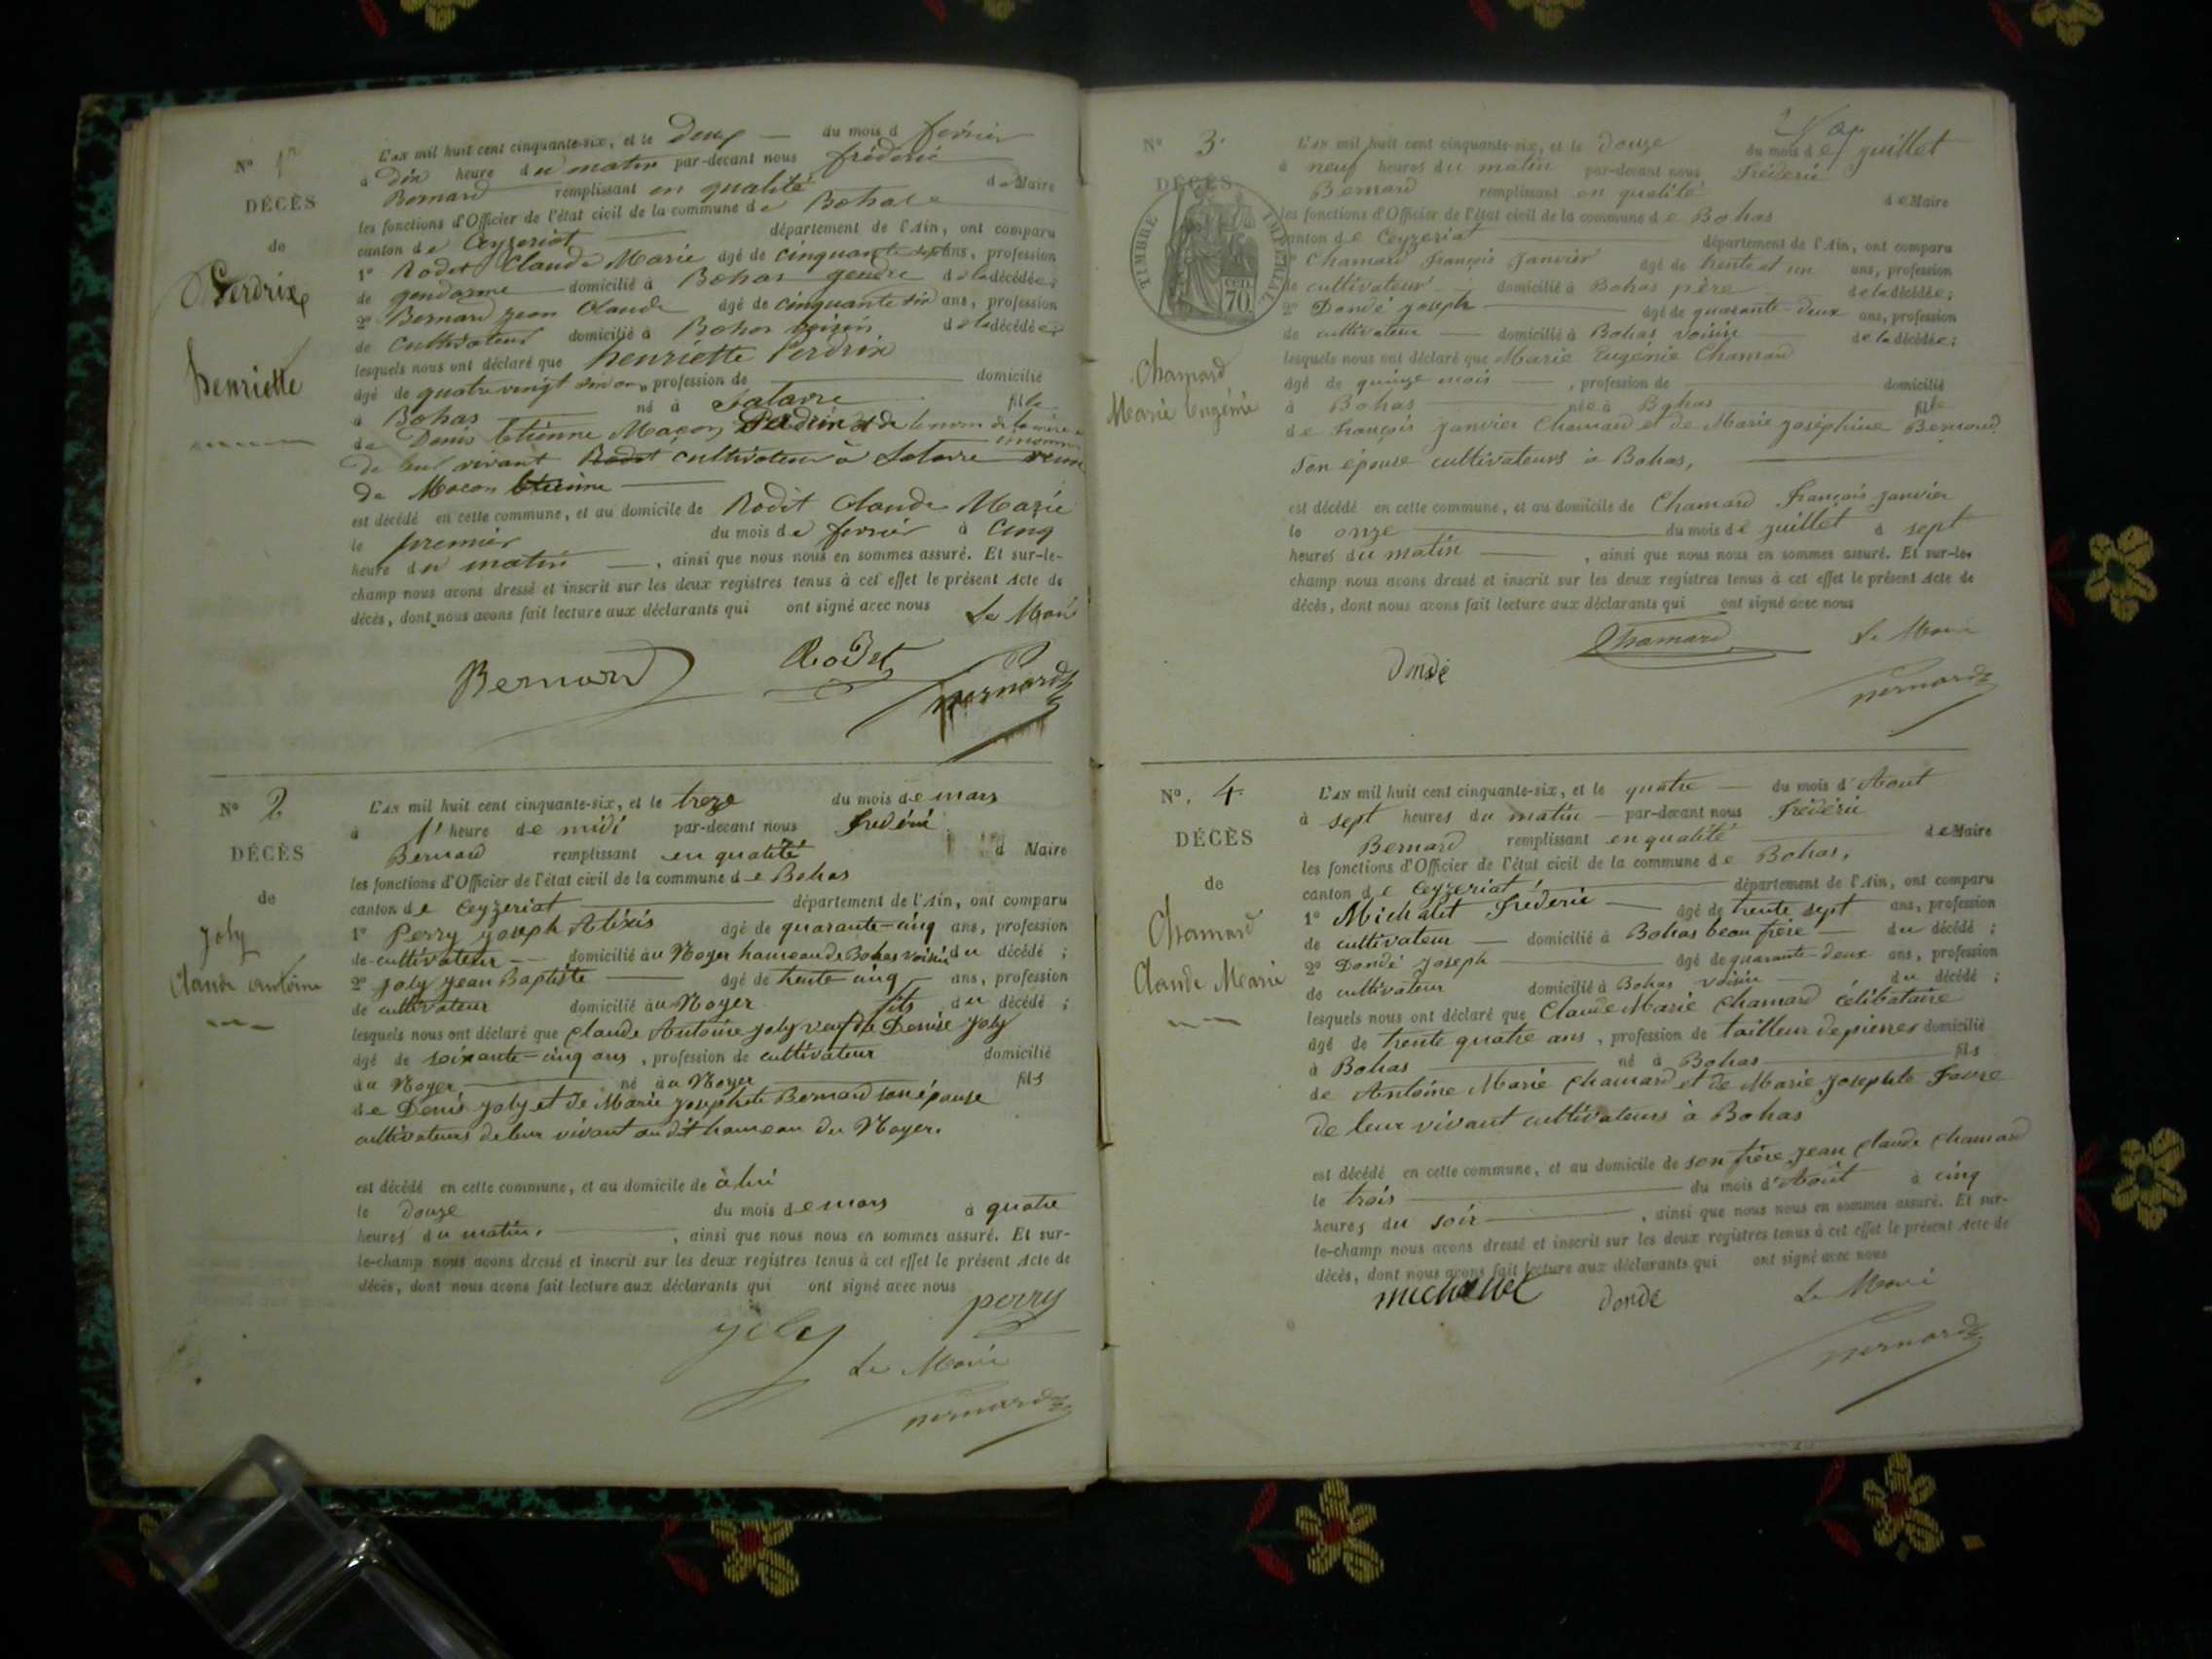 N° 1er
DÉCÈS
de
Perdrix
henriette
L'an mil huit cent cinquante-six, et le Deux du mois d fevrier
à Dix heure du matin par-devant nous fréderic
Bernard remplissant en qualité de Maire
les fonctions d'Officier de l'état civil de la commune de Bohas
canton de Ceyzeriat département de l'Ain, ont comparu
1° Rodet Claude Marie âgé de cinquante sept ans, profession
de gendarme domicilié à Bohas gendre de la décédée;
2° Bernard jean Claude âgé de cinquante six ans, profession
de cultivateur domicilié à Bohas voisin de la décédée;
lesquels nous ont déclaré que henriette Perdrix
âgé de quatre vingt ans, profession de domicilié
à Bohas né à Salavre fille
de Denis Etienne Macon Perdrix et de le nom de la mère
de leur vivant Rodet cultivateur à Salavre veuve
de Macon Etienne
est décédé en cette commune, et au domicile de Rodet Claude Marie
le premier du mois de fevrier à Cinq
heure du matin, ainsi que nous nous en sommes assuré. Et sur-le-
champ nous avons dressé et inscrit sur les deux registres tenus à cet effet le présent Acte de
décès, dont nous avons fait lecture aux déclarants qui ont signé avec nous Le Maire
Bernard Rodet Bernard
N° 2
DÉCÈS
de
Joly
Claude Antoine
L'an mil huit cent cinquante-six, et le treze du mois de mars
à 1' heure de midi par-devant nous Frédéric
Bernard remplissant en qualité d Maire
les fonctions d'Officier de l'état civil de la commune de Bohas
canton de Ceyzeriat département de l'Ain, ont comparu
1° Perry joseph Aléxis âgé de quarante-cinq ans, profession
de cultivateur domicilié au Noyer hameau de Bohas voisin du décédé;
2° Joly Jean Baptiste âgé de trente cinq ans, profession
de cultivateur domicilié au Noyer fils du décédé;
lesquels nous ont déclaré que Claude Antoine Joly veuf de Denise Joly
âgé de soixante-cinq ans, profession de cultivateur domicilié
au Noyer né au Noyer fils
de Denis Joly et de Marie Josephte Bernard son épouse
cultivateurs de leur vivant au dit hameau du Noyer.
est décédé en cette commune, et au domicile de à lui
le douze du mois de mars à quatre
heures du matin, ainsi que nous nous en sommes assuré. Et sur-
le-champ nous avons dressé et inscrit sur les deux registres tenus à cet effet le présent Acte de
décès, dont nous avons fait lecture aux déclarants qui ont signé avec nous
Joly perry
Le Maire
Bernard
N° 3.
DÉCÈS
TIMBRE IMPERIAL
70
Chamard
Marie Eugénie
L'an mil huit cent cinquante-six, et le douze du mois de juillet
à neuf heures du matin par-devant nous Fréderic
Bernard remplissant en qualité de Maire
les fonctions d'Officier de l'état civil de la commune de Bohas
canton de Ceyzeriat département de l'Ain, ont comparu
Chamard François Janvier âgé de trente et un ans, profession
de cultivateur domicilié à Bohas père de la décédée;
2° Dondé Joseph âgé de quarante-deux ans, profession
de cultivateur domicilié à Bohas voisin de la décédée;
lesquels nous ont déclaré que Marie Eugénie Chamard
âgé de quinze mois, profession de domicilié
à Bohas née à Bohas fille
de François Janvier Chamard et de Marie Joséphine Bernard
son épouse cultivateurs à Bohas,
est décédé en cette commune, et au domicile de Chamard François Janvier
le onze du mois de juillet à sept
heures du matin, ainsi que nous nous en sommes assuré. Et sur-le-
champ nous avons dressé et inscrit sur les deux registres tenus à cet effet le présent Acte de
décès, dont nous avons fait lecture aux déclarants qui ont signé avec nous
Chamard Le Maire
Dondé
Bernard
N°. 4.
DÉCÈS
de
Chamard
Claude Marie
L'an mil huit cent cinquante-six, et le quatre du mois d'Aout
à sept heures du matin par-devant nous Fréderic
Bernard remplissant en qualité de Maire
les fonctions d'Officier de l'état civil de la commune de Bohas,
canton de Ceyzeriat département de l'Ain, ont comparu
1° Michalet Fréderic âgé de trente sept ans, profession
de cultivateur domicilié à Bohas beau frère du décédé;
2° Dondé Joseph âgé de quarante-deux ans, profession
de cultivateur domicilié à Bohas voisin du décédé;
lesquels nous ont déclaré que Claude Marie Chamard célibataire
âgé de trente quatre ans, profession de tailleur de pierres domicilié
à Bohas né à Bohas fils
de Antoine Marie Chamard et de Marie Josephte Favre
de leur vivant cultivateurs à Bohas
est décédé en cette commune, et au domicile de son frère Jean Claude Chamard
le trois du mois d'Août à cinq
heures du soir, ainsi que nous nous en sommes assuré. Et sur-
le-champ nous avons dressé et inscrit sur les deux registres tenus à cet effet le présent Acte de
décès, dont nous avons fait lecture aux déclarants qui ont signé avec nous
michalet Dondé Le Maire
Bernard